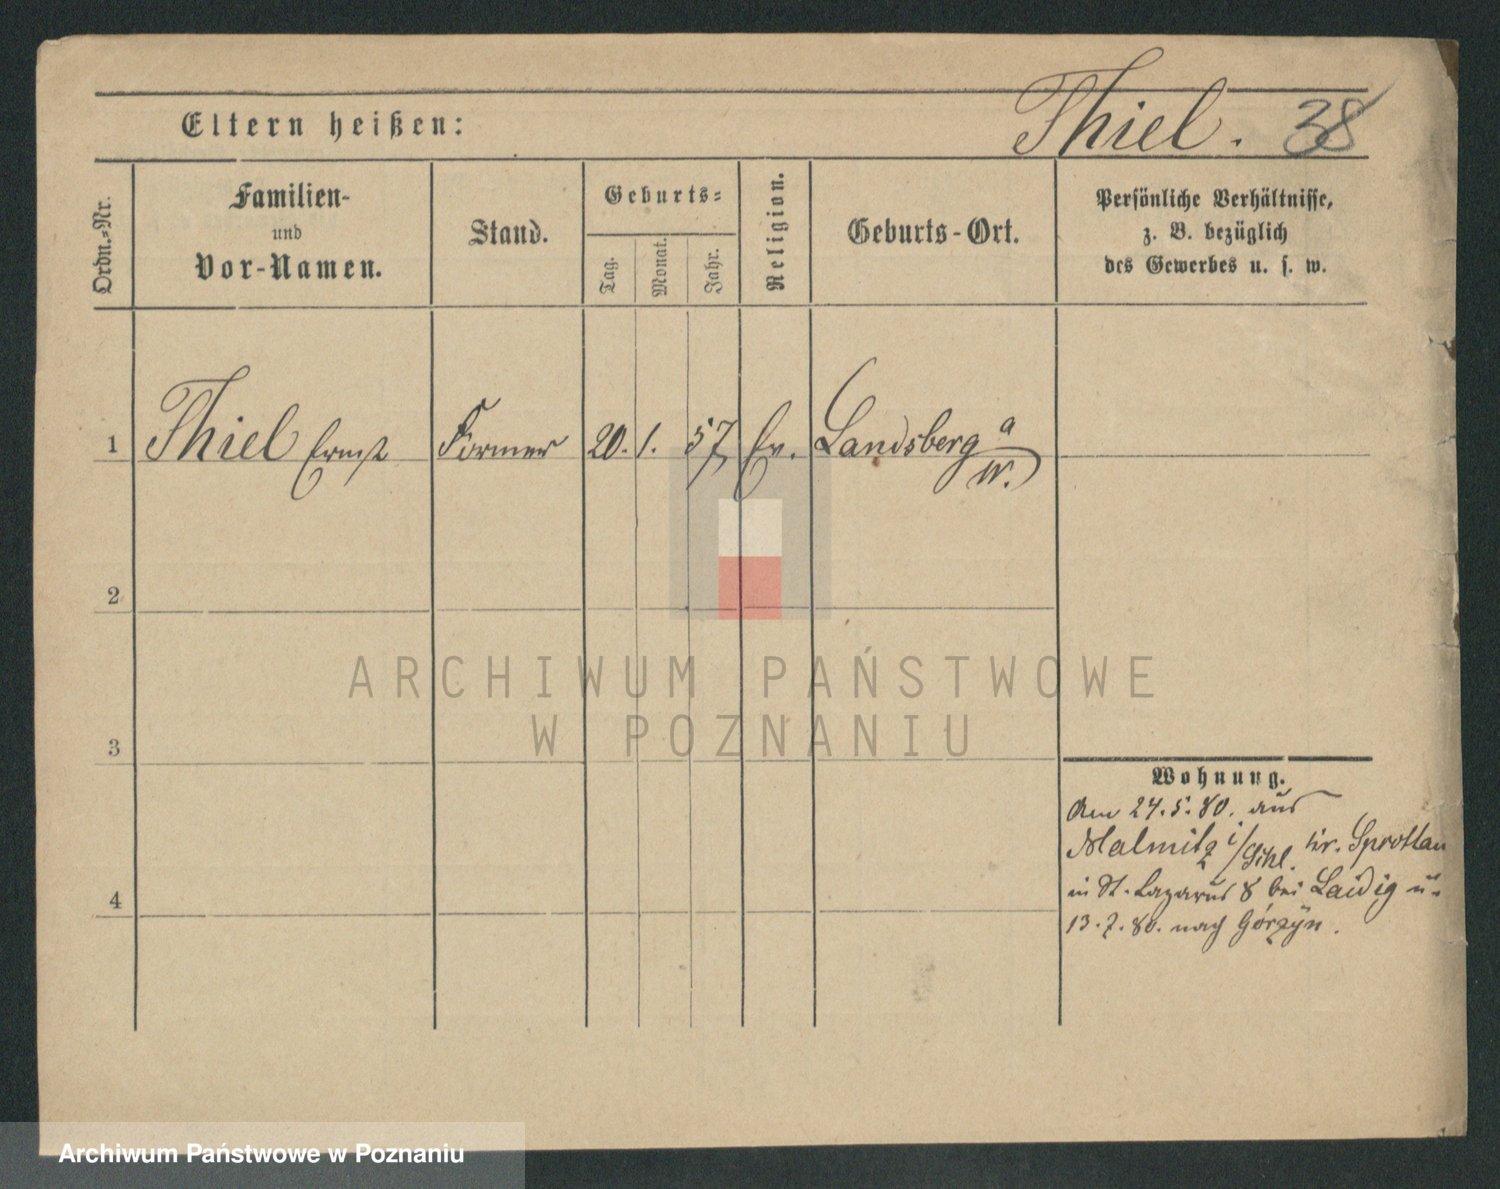 Eltern heißen:
Thiel. 38
Ordn.-Nr.
Familien-
und
Vor-Namen.
Stand.
Geburts-
Tag.
Monat.
Jahr.
Religion.
Geburts-Ort.
Persönliche Verhältnisse,
z. B. bezüglich
des Gewerbes u. s. w.
1 Thiel Ernst Former 20. 1. 57 Ev. Landsberg a/W.
2
3
4
Wohnung.
Am 24.5.80. aus
Malmitz i/Schl. Kr. Sprottau
in St. Lazarus 8 bei Laidig u.
13.7.80. nach Górzyn.
ARCHIWUM PAŃSTWOWE
W POZNANIU
Archiwum Państwowe w Poznaniu